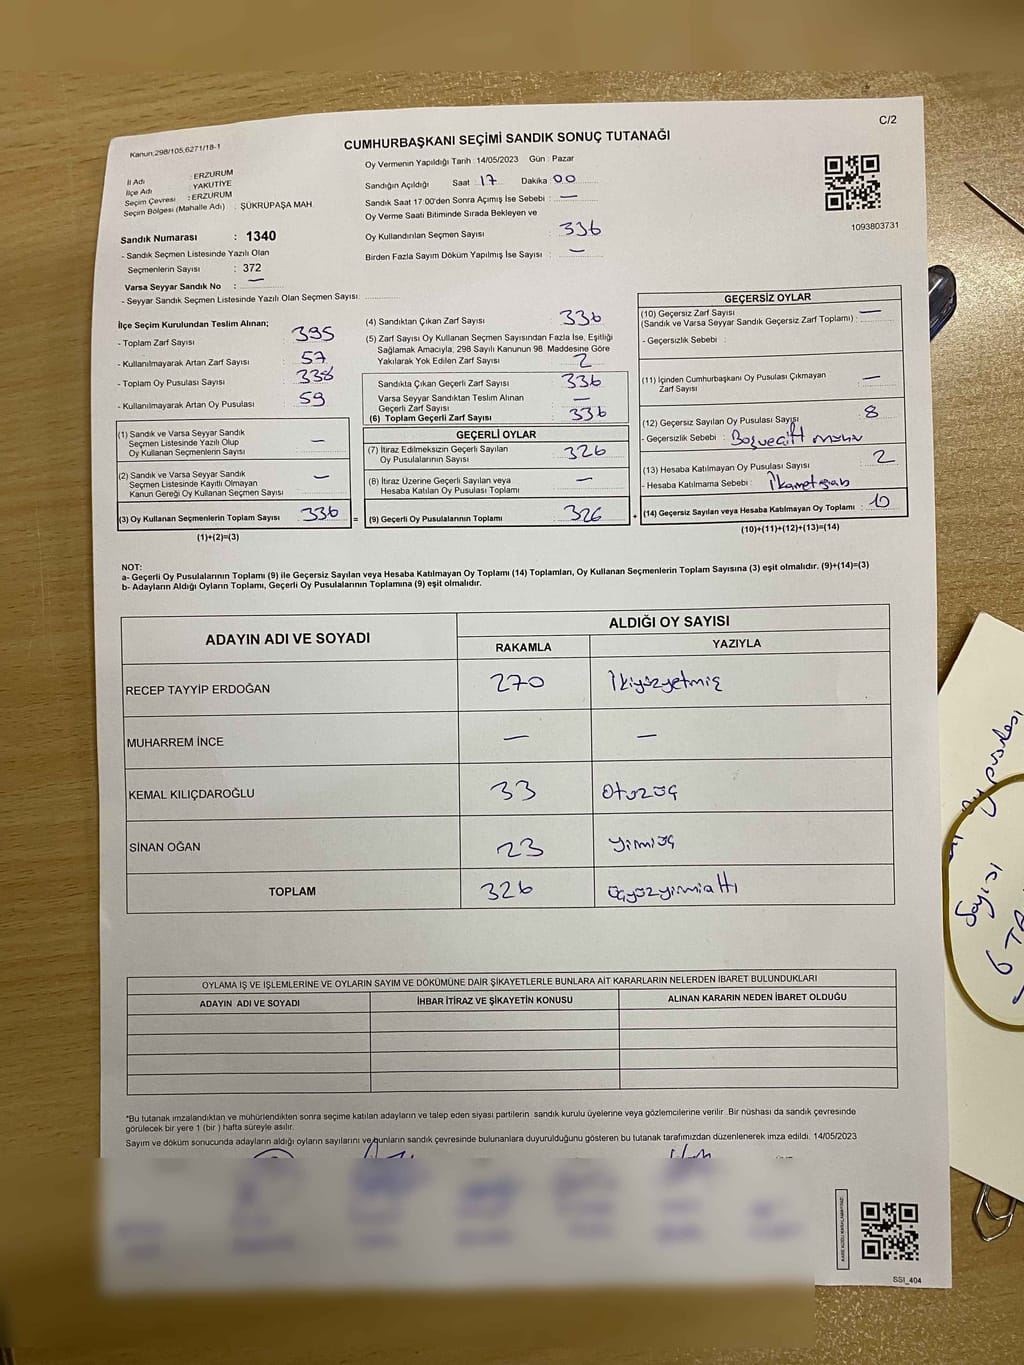 C/2
Kanun.298/105,6271/18-1
CUMHURBAŞKANI SEÇİMİ SANDIK SONUÇ TUTANAĞI
İl Adı : ERZURUM
İlçe Adı : YAKUTİYE
Seçim Çevresi : ERZURUM
Seçim Bölgesi (Mahalle Adı) : ŞÜKRÜPAŞA MAH.
Sandık Numarası : 1340
- Sandık Seçmen Listesinde Yazılı Olan
Seçmenlerin Sayısı : 372
Varsa Seyyar Sandık No : —
- Seyyar Sandık Seçmen Listesinde Yazılı Olan Seçmen Sayısı:
Oy Vermenin Yapıldığı Tarih : 14/05/2023 Gün : Pazar
Sandığın Açıldığı Saat 17 Dakika 00
Sandık Saat 17.00'den Sonra Açılmış İse Sebebi : —
Oy Verme Saati Bitiminde Sırada Bekleyen ve
Oy Kullandırılan Seçmen Sayısı : 336
Birden Fazla Sayım Döküm Yapılmış İse Sayısı : —
1093803731
İlçe Seçim Kurulundan Teslim Alınan;
- Toplam Zarf Sayısı : 395
- Kullanılmayarak Artan Zarf Sayısı : 57
- Toplam Oy Pusulası Sayısı : 338
- Kullanılmayarak Artan Oy Pusulası : 59
(1) Sandık ve Varsa Seyyar Sandık
Seçmen Listesinde Yazılı Olup
Oy Kullanan Seçmenlerin Sayısı : —
(2) Sandık ve Varsa Seyyar Sandık
Seçmen Listesinde Kayıtlı Olmayan
Kanun Gereği Oy Kullanan Seçmen Sayısı : —
(3) Oy Kullanan Seçmenlerin Toplam Sayısı : 336
(1)+(2)=(3)
(4) Sandıktan Çıkan Zarf Sayısı : 336
(5) Zarf Sayısı Oy Kullanan Seçmen Sayısından Fazla İse, Eşitliği
Sağlamak Amacıyla, 298 Sayılı Kanunun 98. Maddesine Göre
Yakılarak Yok Edilen Zarf Sayısı : 2
Sandıkta Çıkan Geçerli Zarf Sayısı : 336
Varsa Seyyar Sandıktan Teslim Alınan
Geçerli Zarf Sayısı : —
(6) Toplam Geçerli Zarf Sayısı : 336
GEÇERLİ OYLAR
(7) İtiraz Edilmeksizin Geçerli Sayılan
Oy Pusulalarının Sayısı : 326
(8) İtiraz Üzerine Geçerli Sayılan veya
Hesaba Katılan Oy Pusulası Toplamı : —
= (9) Geçerli Oy Pusulalarının Toplamı : 326
GEÇERSİZ OYLAR
(10) Geçersiz Zarf Sayısı
(Sandık ve Varsa Seyyar Sandık Geçersiz Zarf Toplamı) : —
- Geçersizlik Sebebi :
(11) İçinden Cumhurbaşkanı Oy Pusulası Çıkmayan
Zarf Sayısı : —
(12) Geçersiz Sayılan Oy Pusulası Sayısı : 8
- Geçersizlik Sebebi :
(13) Hesaba Katılmayan Oy Pusulası Sayısı : 2
- Hesaba Katılmama Sebebi :
+ (14) Geçersiz Sayılan veya Hesaba Katılmayan Oy Toplamı : 10
(10)+(11)+(12)+(13)=(14)
NOT:
a- Geçerli Oy Pusulalarının Toplamı (9) ile Geçersiz Sayılan veya Hesaba Katılmayan Oy Toplamı (14) Toplamları, Oy Kullanan Seçmenlerin Toplam Sayısına (3) eşit olmalıdır. (9)+(14)=(3)
b- Adayların Aldığı Oyların Toplamı, Geçerli Oy Pusulalarının Toplamına (9) eşit olmalıdır.
ADAYIN ADI VE SOYADI
ALDIĞI OY SAYISI
RAKAMLA YAZIYLA
RECEP TAYYİP ERDOĞAN 270 İkiyüzyetmiş
MUHARREM İNCE — —
KEMAL KILIÇDAROĞLU 33 Otuzüç
SİNAN OĞAN 23 Yirmiüç
TOPLAM 326 Üçyüzyirmialtı
OYLAMA İŞ VE İŞLEMLERİNE VE OYLARIN SAYIM VE DÖKÜMÜNE DAİR ŞİKAYETLERLE BUNLARA AİT KARARLARIN NELERDEN İBARET BULUNDUKLARI
ADAYIN ADI VE SOYADI İHBAR İTİRAZ VE ŞİKAYETİN KONUSU ALINAN KARARIN NEDEN İBARET OLDUĞU
*Bu tutanak imzalandıktan ve mühürlendikten sonra seçime katılan adayların ve talep eden siyasi partilerin sandık kurulu üyelerine veya gözlemcilerine verilir. Bir nüshası da sandık çevresinde
görülecek bir yere 1 (bir) hafta süreyle asılır.
Sayım ve döküm sonucunda adayların aldığı oyların sayılarını ve bunların sandık çevresinde bulunanlara duyurulduğunu gösteren bu tutanak tarafımızdan düzenlenerek imza edildi. 14/05/2023
SSI_404
Sayısı